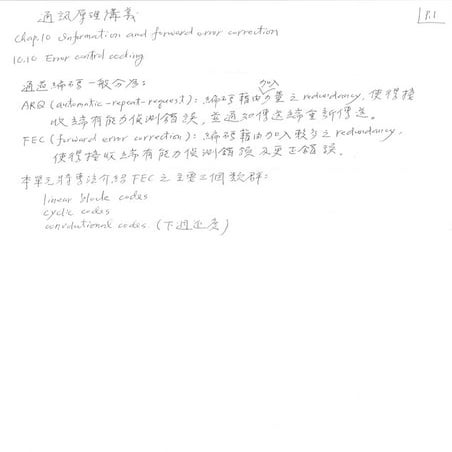 通訊原理講義
P.1
Chap.10 Information and forward error correction
10.10 Error control coding
通道編碼一般分為:
ARQ (automatic-repeat-request): 編碼藉由加入少量之redundancy, 使得接
收端有能力偵測錯誤, 並通知傳送端重新傳送。
FEC (forward error correction): 編碼藉由加入較多之redundancy,
使得接收端有能力偵測錯誤及更正錯誤。
本單元將專注介紹FEC之主要三個數群:
linear block codes
cyclic codes
convolutional codes (下週進度)